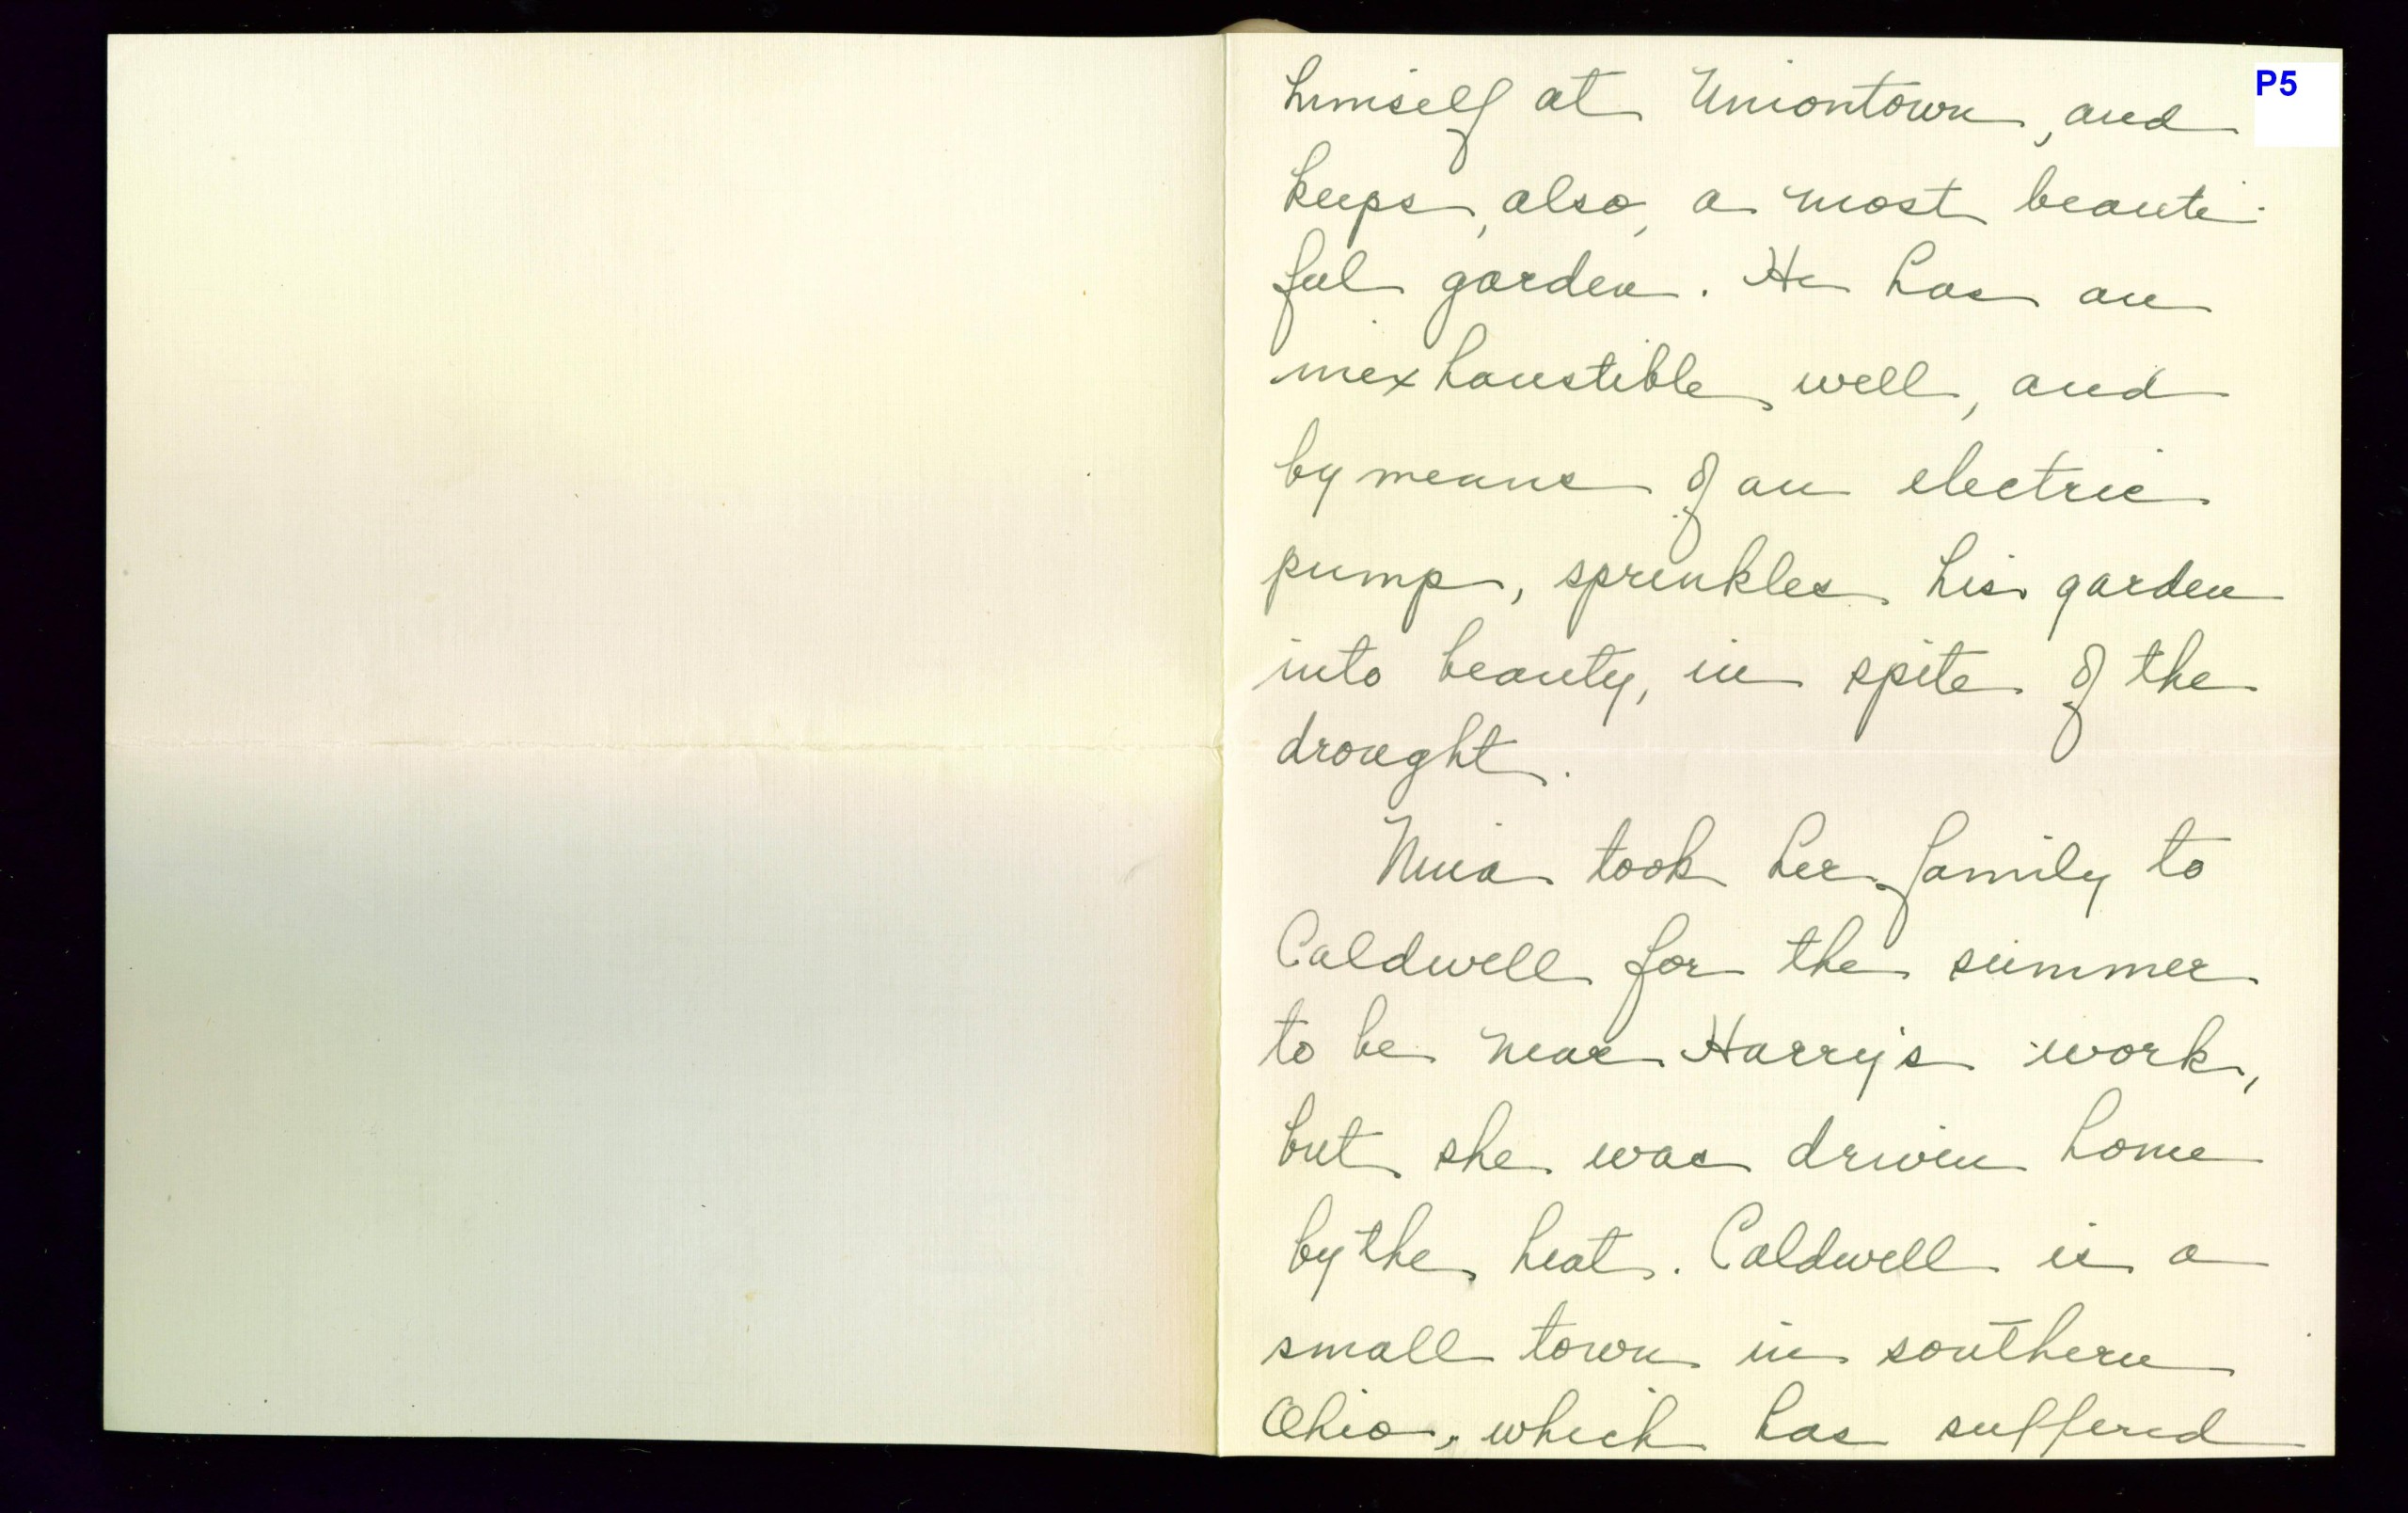 P5
himself at Uniontown, and
keeps, also, a most beauti-
ful garden. He has an
inexhaustible well, and
by means of an electric
pump, sprinkles his garden
into beauty, in spite of the
drought.
Nina took her family to
Caldwell for the summer
to be near Harry's work,
but she was driven home
by the heat. Caldwell is a
small town in southern
Ohio, which has suffered